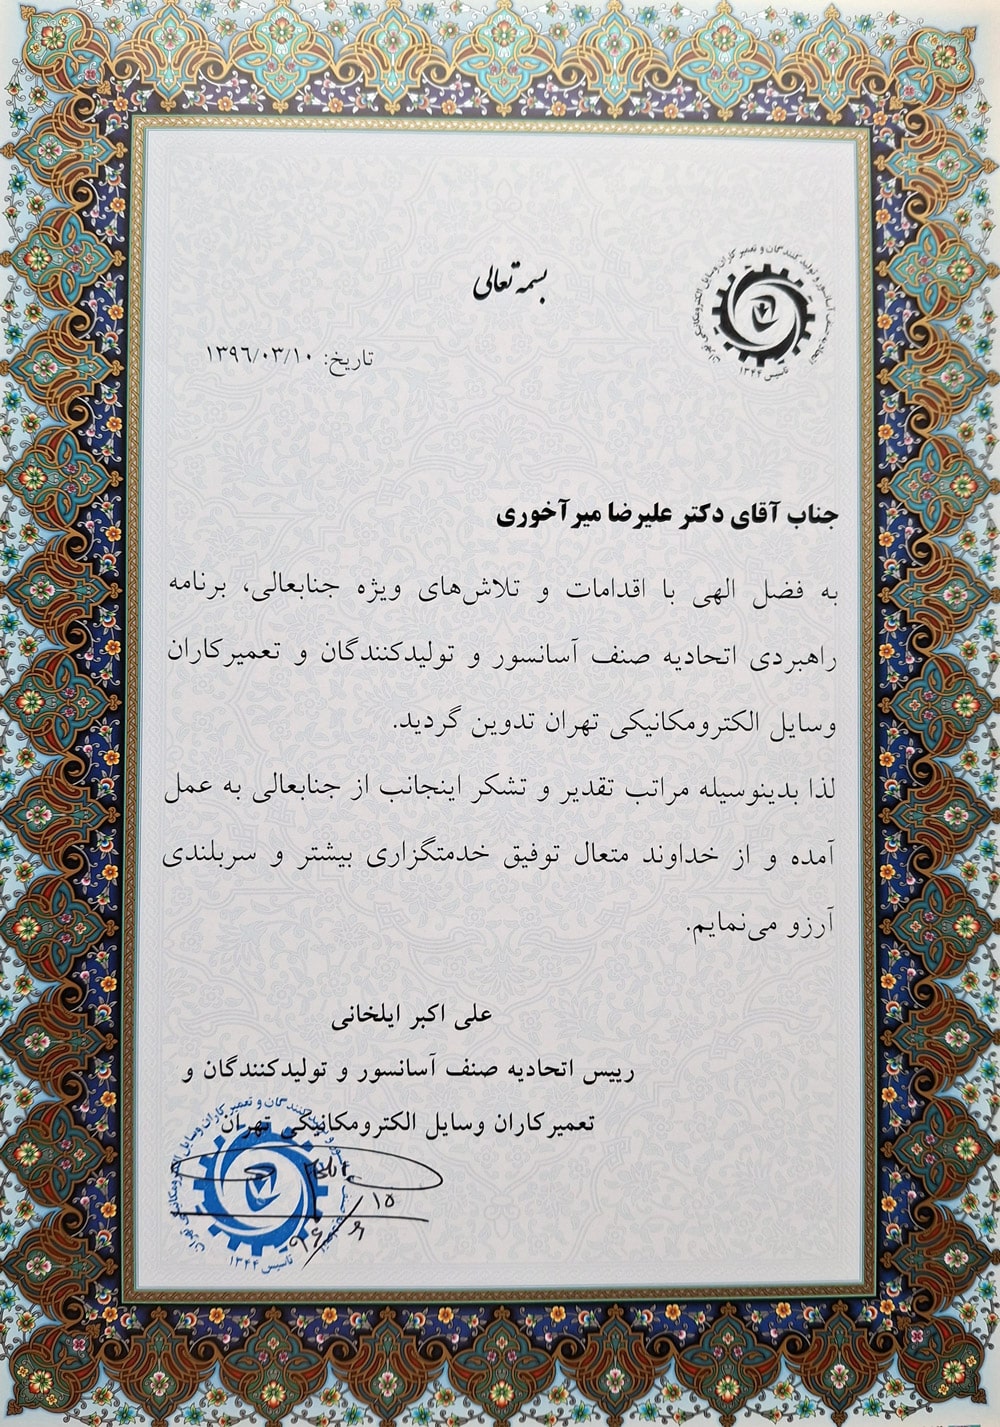 بسمه تعالی
اتحادیه صنف آسانسور و تولیدکنندگان و تعمیرکاران وسایل الکترومکانیکی تهران
تاسیس ۱۳۴۴
تاریخ: ۱۳۹۶/۰۳/۱۰
جناب آقای دکتر علیرضا میرآخوری
به فضل الهی با اقدامات و تلاش‌های ویژه جنابعالی، برنامه
راهبردی اتحادیه صنف آسانسور و تولیدکنندگان و تعمیرکاران
وسایل الکترومکانیکی تهران تدوین گردید.
لذا بدینوسیله مراتب تقدیر و تشکر اینجانب از جنابعالی به عمل
آمده و از خداوند متعال توفیق خدمتگزاری بیشتر و سربلندی
آرزو می‌نمایم.
علی اکبر ایلخانی
رییس اتحادیه صنف آسانسور و تولیدکنندگان و
تعمیرکاران وسایل الکترومکانیکی تهران
تاسیس ۱۳۴۴